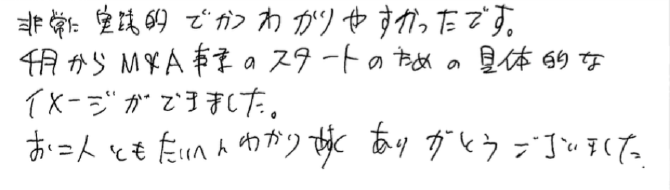 非常に実践的でかつわかりやすかったです。
4月からM&A事業のスタートのための具体的な
イメージができました。
お二人ともたいへんわかり易く ありがとうございました